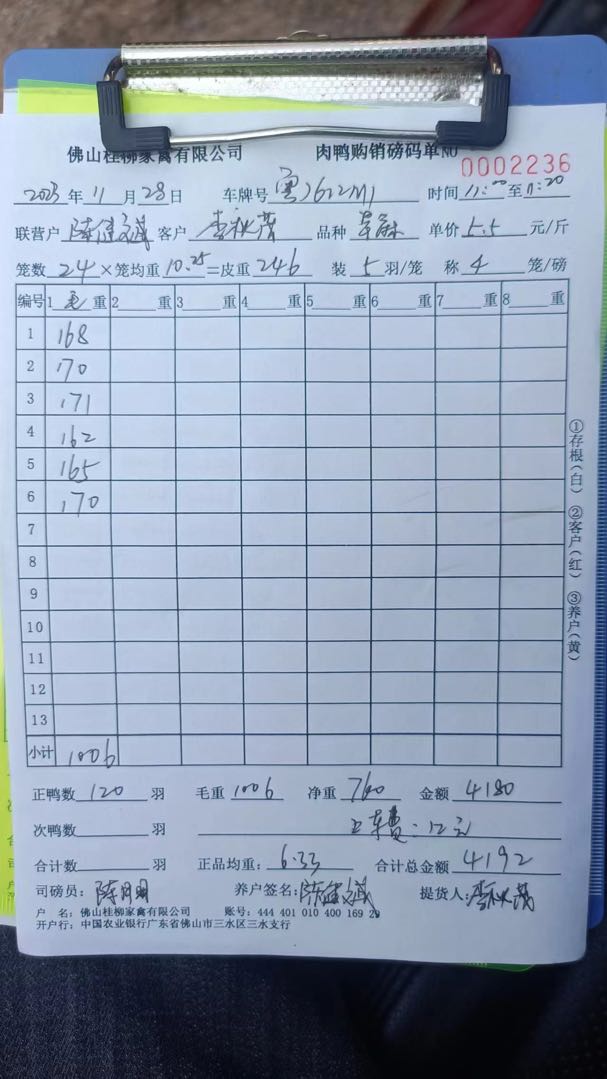 佛山桂柳家禽有限公司 肉鸭购销磅码单NO 0002236
2023年11月28日 车牌号 时间11:00至11:20
联营户 客户 李秋茂 品种 单价5.5元/斤
笼数24×笼均重10.25=皮重246 装5羽/笼 称4笼/磅
编号 1毛重 2 重 3 重 4 重 5 重 6 重 7 重 8 重
1 168
2 170
3 171
4 162
5 165
6 170
7
8
9
10
11
12
13
小计 1006
正鸭数120羽 毛重1006 净重760 金额4180
次鸭数 羽 上车费:12元
合计数 羽 正品均重:6.33 合计总金额4192
司磅员: 养户签名: 提货人:李秋茂
户 名:佛山桂柳家禽有限公司 账号:444 401 010 400 169 29
开户行:中国农业银行广东省佛山市三水区三水支行
①存根(白) ②客户(红) ③养户(黄)